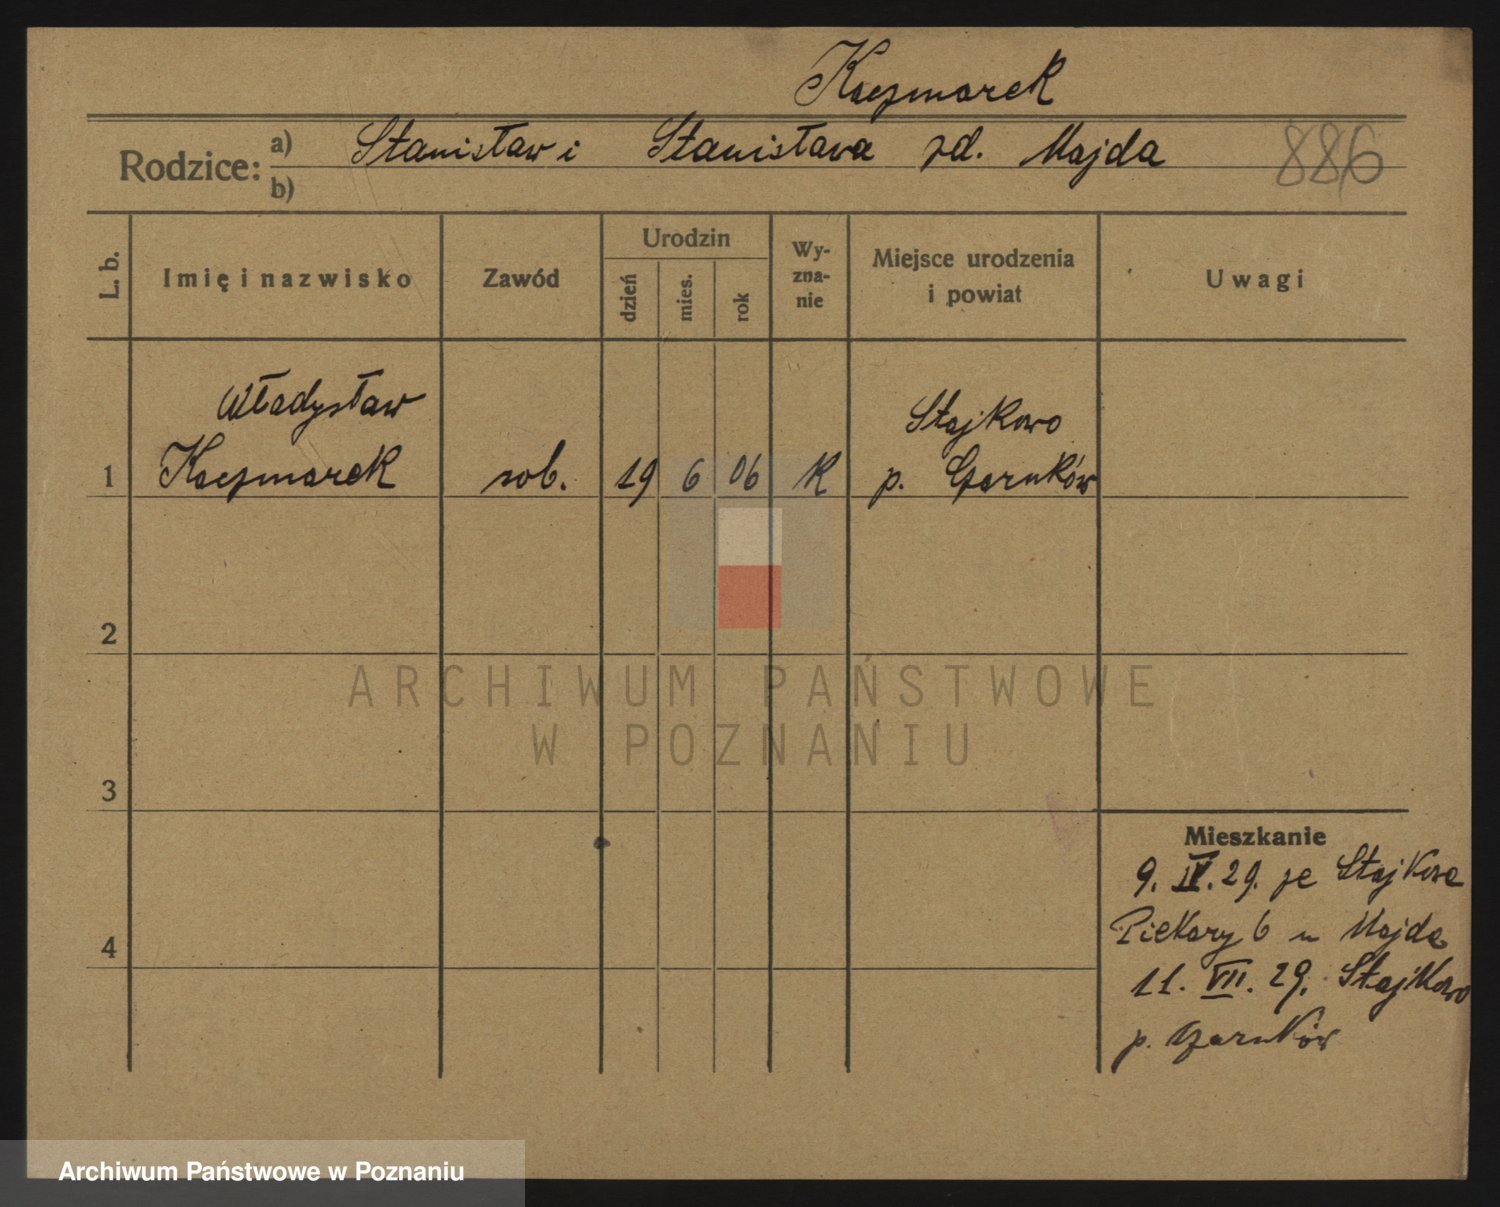 Kaczmarek
Rodzice: a) Stanisław i Stanisława zd. Majda
b)
886
L. b.
Imię i nazwisko
Zawód
Urodzin
dzień
mies.
rok
Wy-
zna-
nie
Miejsce urodzenia
i powiat
Uwagi
Władysław
Stajkowo
1 Kaczmarek rob. 19 6 06 K p. Czarnków
2
ARCHIWUM PAŃSTWOWE
W POZNANIU
3
Mieszkanie
9. IV. 29. ze Stajkowa
Piekary 6 u Majda
4
11. VII. 29. Stajkowo
p. Czarnków
Archiwum Państwowe w Poznaniu